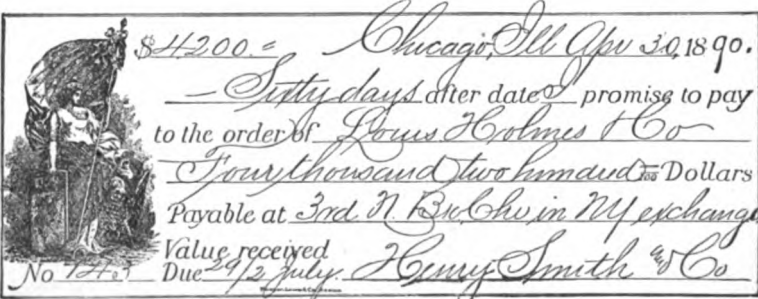 $4200.= Chicago, Ill Apr 30, 1890.
— Sixty days after date I promise to pay
to the order of Louis Holmes & Co
Four thousand two hundred Dollars
Payable at 3rd N. Bk Chi in NY exchange
Value received
No 743 Due 29/2 July. Henry Smith & Co